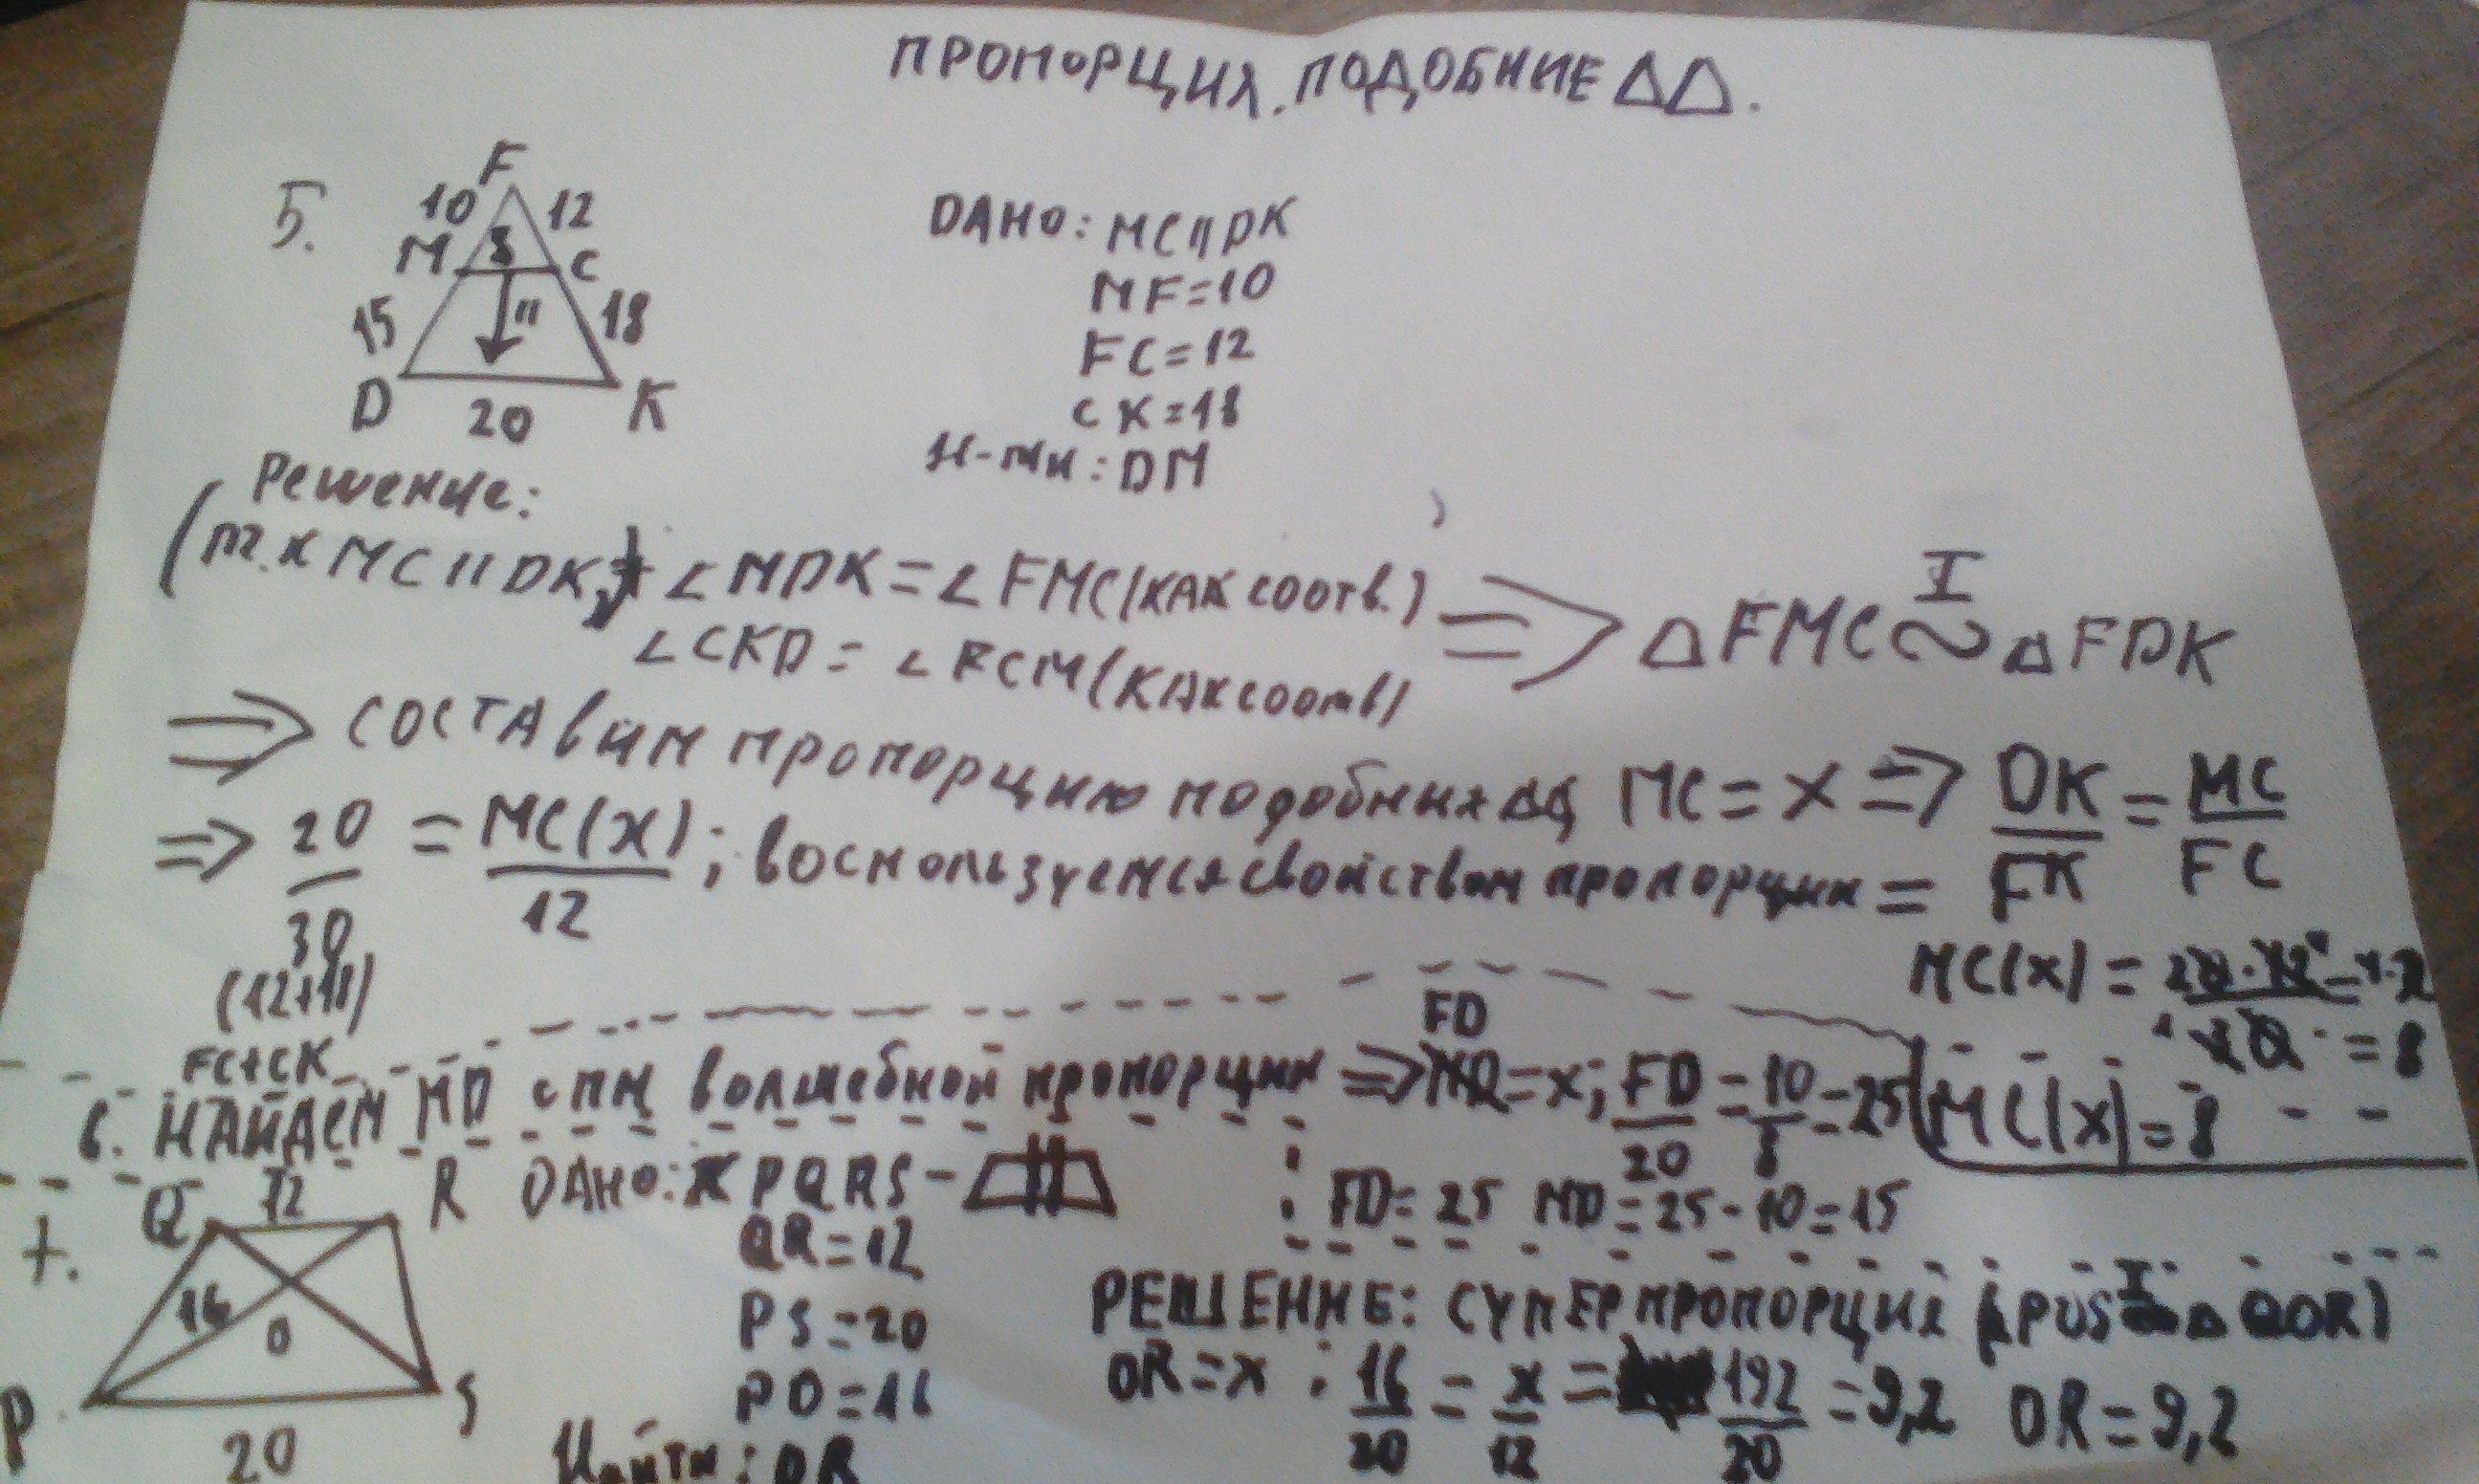 ПРОПОРЦИЯ. ПОДОБНИЕ ΔΔ.
5.
F
10 12
M 8 C
15 11 18
D 20 K
ДАНО: MC || DK
MF=10
FC=12
CK=18
Н-ти: DM
Решение:
(т.к MC || DK, ∠MDK = ∠FMC (КАК соотв.)
∠CKD = ∠FCM (КАК соотв)
⇒ ΔFMC I ∼ ΔFDK
⇒ СОСТАВИМ пропорцию подобных ΔΔ MC = X ⇒ DK/FK = MC/FC
⇒ 20/30 = MC(x)/12; воспользуемся свойством пропорции =
(12+18)
FC+CK
MC(x) = 20·12/30 = 4·2 = 8
MC(x) = 8
6. НАЙДЕМ MD с пм волшебной пропорции ⇒ FD = x; FD/20 = 10/8 = 25
FD = 25 MD = 25 - 10 = 15
7.
Q 12 R
16 O
P 20 S
ДАНО: PQRS -
QR=12
PS=20
PO=16
Найти: OR
РЕШЕНИЕ: СУПЕР ПРОПОРЦИЯ (POS I ∼ Δ QOR)
OR = x : 16/20 = x/12 = 192/20 = 9,2 OR = 9,2